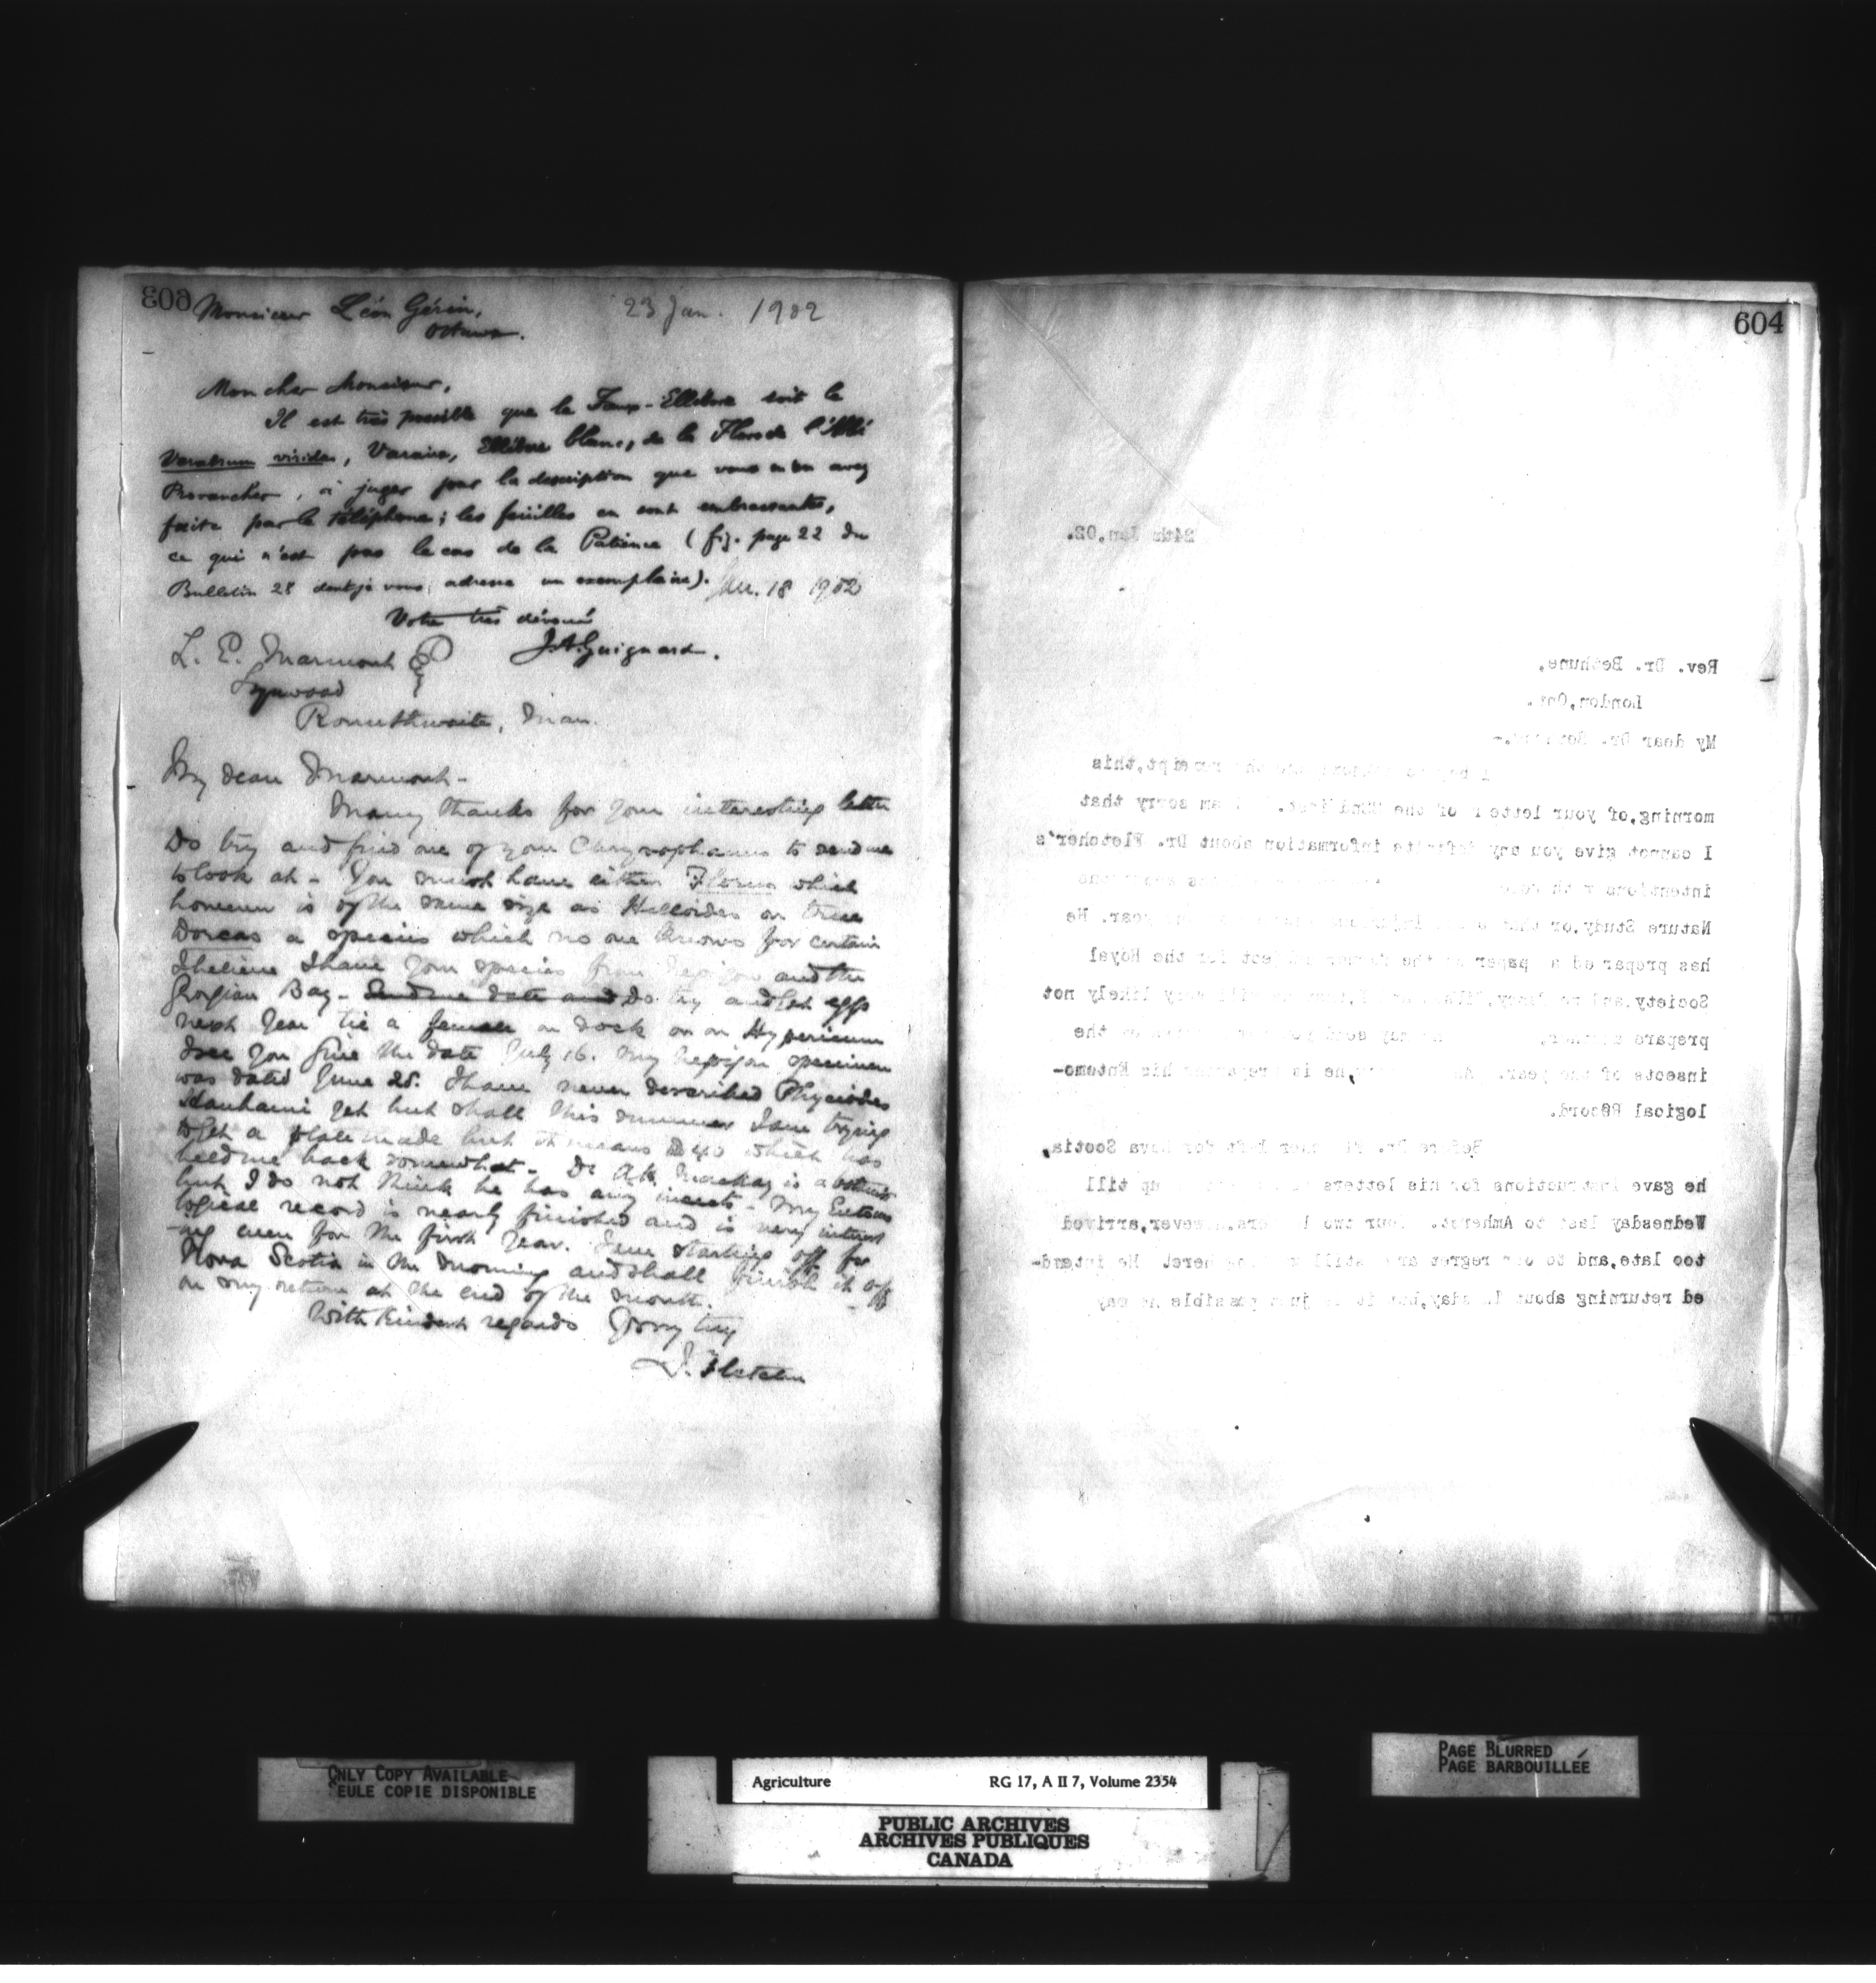 603
Monsieur Léon Gérin,
Ottawa.
23 Jan. 1902
Mon cher Monsieur,
Il est très possible que le Faux-Ellébore soit le
Veratrum viride, Varaire, Ellébore blanc, de la Flore de l'Abbé
Provancher, à juger par la description que vous m'en avez
faite par le téléphone; les feuilles en sont embrassantes,
ce qui n'est pas le cas de la Patience (fig. page 22 du
Bulletin 28 dont je vous adresse un exemplaire).
Jan. 18 1902
Votre très dévoué
J.A. Guignard.
L. E. Marmont
Lynwood
Rounthwaite, Man.
My dear Marmont-
Many thanks for your interesting letter
Do try and find one of your Chrysophanus to send me
to look at - You must have either Florus which
however is of the same size as Helloides or true
Dorcas a species which no one knows for certain
I believe I have your species from Nepigon and the
Georgian Bay - Send me date and Do try and get eggs
next year tie a female on dock or on Hypericum
I see you give the date July 16. My Nepigon specimen
was dated June 25. I have never described Phyciodes
Hanhami yet but shall this summer I am trying
to get a plate made but it means $40 which has
held me back somewhat - Dr A.H. Mackay is a botanist
but I do not think he has any insects - My Entomo
logical record is nearly finished and is very interest
-ing even for the first year. I am starting off for
Nova Scotia in the morning and shall finish it off
on my return at the end of the month.
With kindest regards Yours truly
J. Fletcher
604
24th Jan,02.
Rev. Dr. Bethune,
London,Ont.
My dear Dr. Bethune.-
I beg to receipt,this
morning,of your letter of the 22nd inst. I am sorry that
I cannot give you any definite information about Dr. Fletcher's
intentions
Nature Study,or year. He
has prepared a paper on the former subject for the Royal
Society,and very likely not
prepare another, may send the
insects of the year. he is preparing his Entomo-
logical Record.
Before Dr. Fletcher left for Nova Scotia,
he gave instructions for his letters up till
Wednesday last to Amherst. Your two letters,however,arrived
too late,and to our regret are still here! He intend-
ed returning about but it is just possible he may
ONLY COPY AVAILABLE
SEULE COPIE DISPONIBLE
Agriculture RG 17, A II 7, Volume 2354
PUBLIC ARCHIVES
ARCHIVES PUBLIQUES
CANADA
PAGE BLURRED
PAGE BARBOUILLÉE